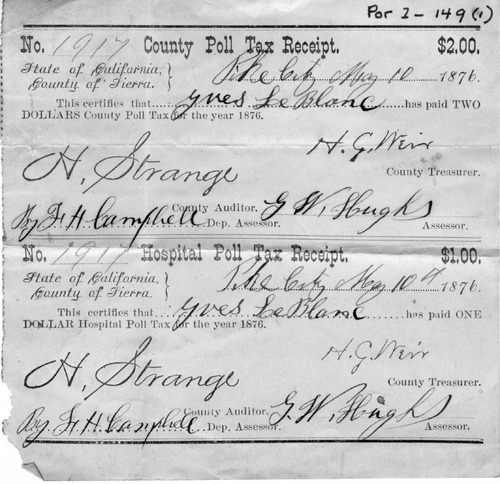 Por I - 149 (1)
No. 1917 County Poll Tax Receipt. $2.00.
State of California, } Pike City May 10 1876.
County of Sierra. }
This certifies that Yves Le Blanc has paid TWO
DOLLARS County Poll Tax for the year 1876.
H. G. Weir
H, Strange County Treasurer.
County Auditor. G. W. Hughs
By F. H. Campbell Dep. Assessor. Assessor.
No. 1917 Hospital Poll Tax Receipt. $1.00.
State of California, } Pike City May 10th 1876.
County of Sierra. }
This certifies that Yves Le Blanc has paid ONE
DOLLAR Hospital Poll Tax for the year 1876.
H. G. Weir
H, Strange County Treasurer.
County Auditor. G. W. Hughs
By F. H. Campbell Dep. Assessor. Assessor.